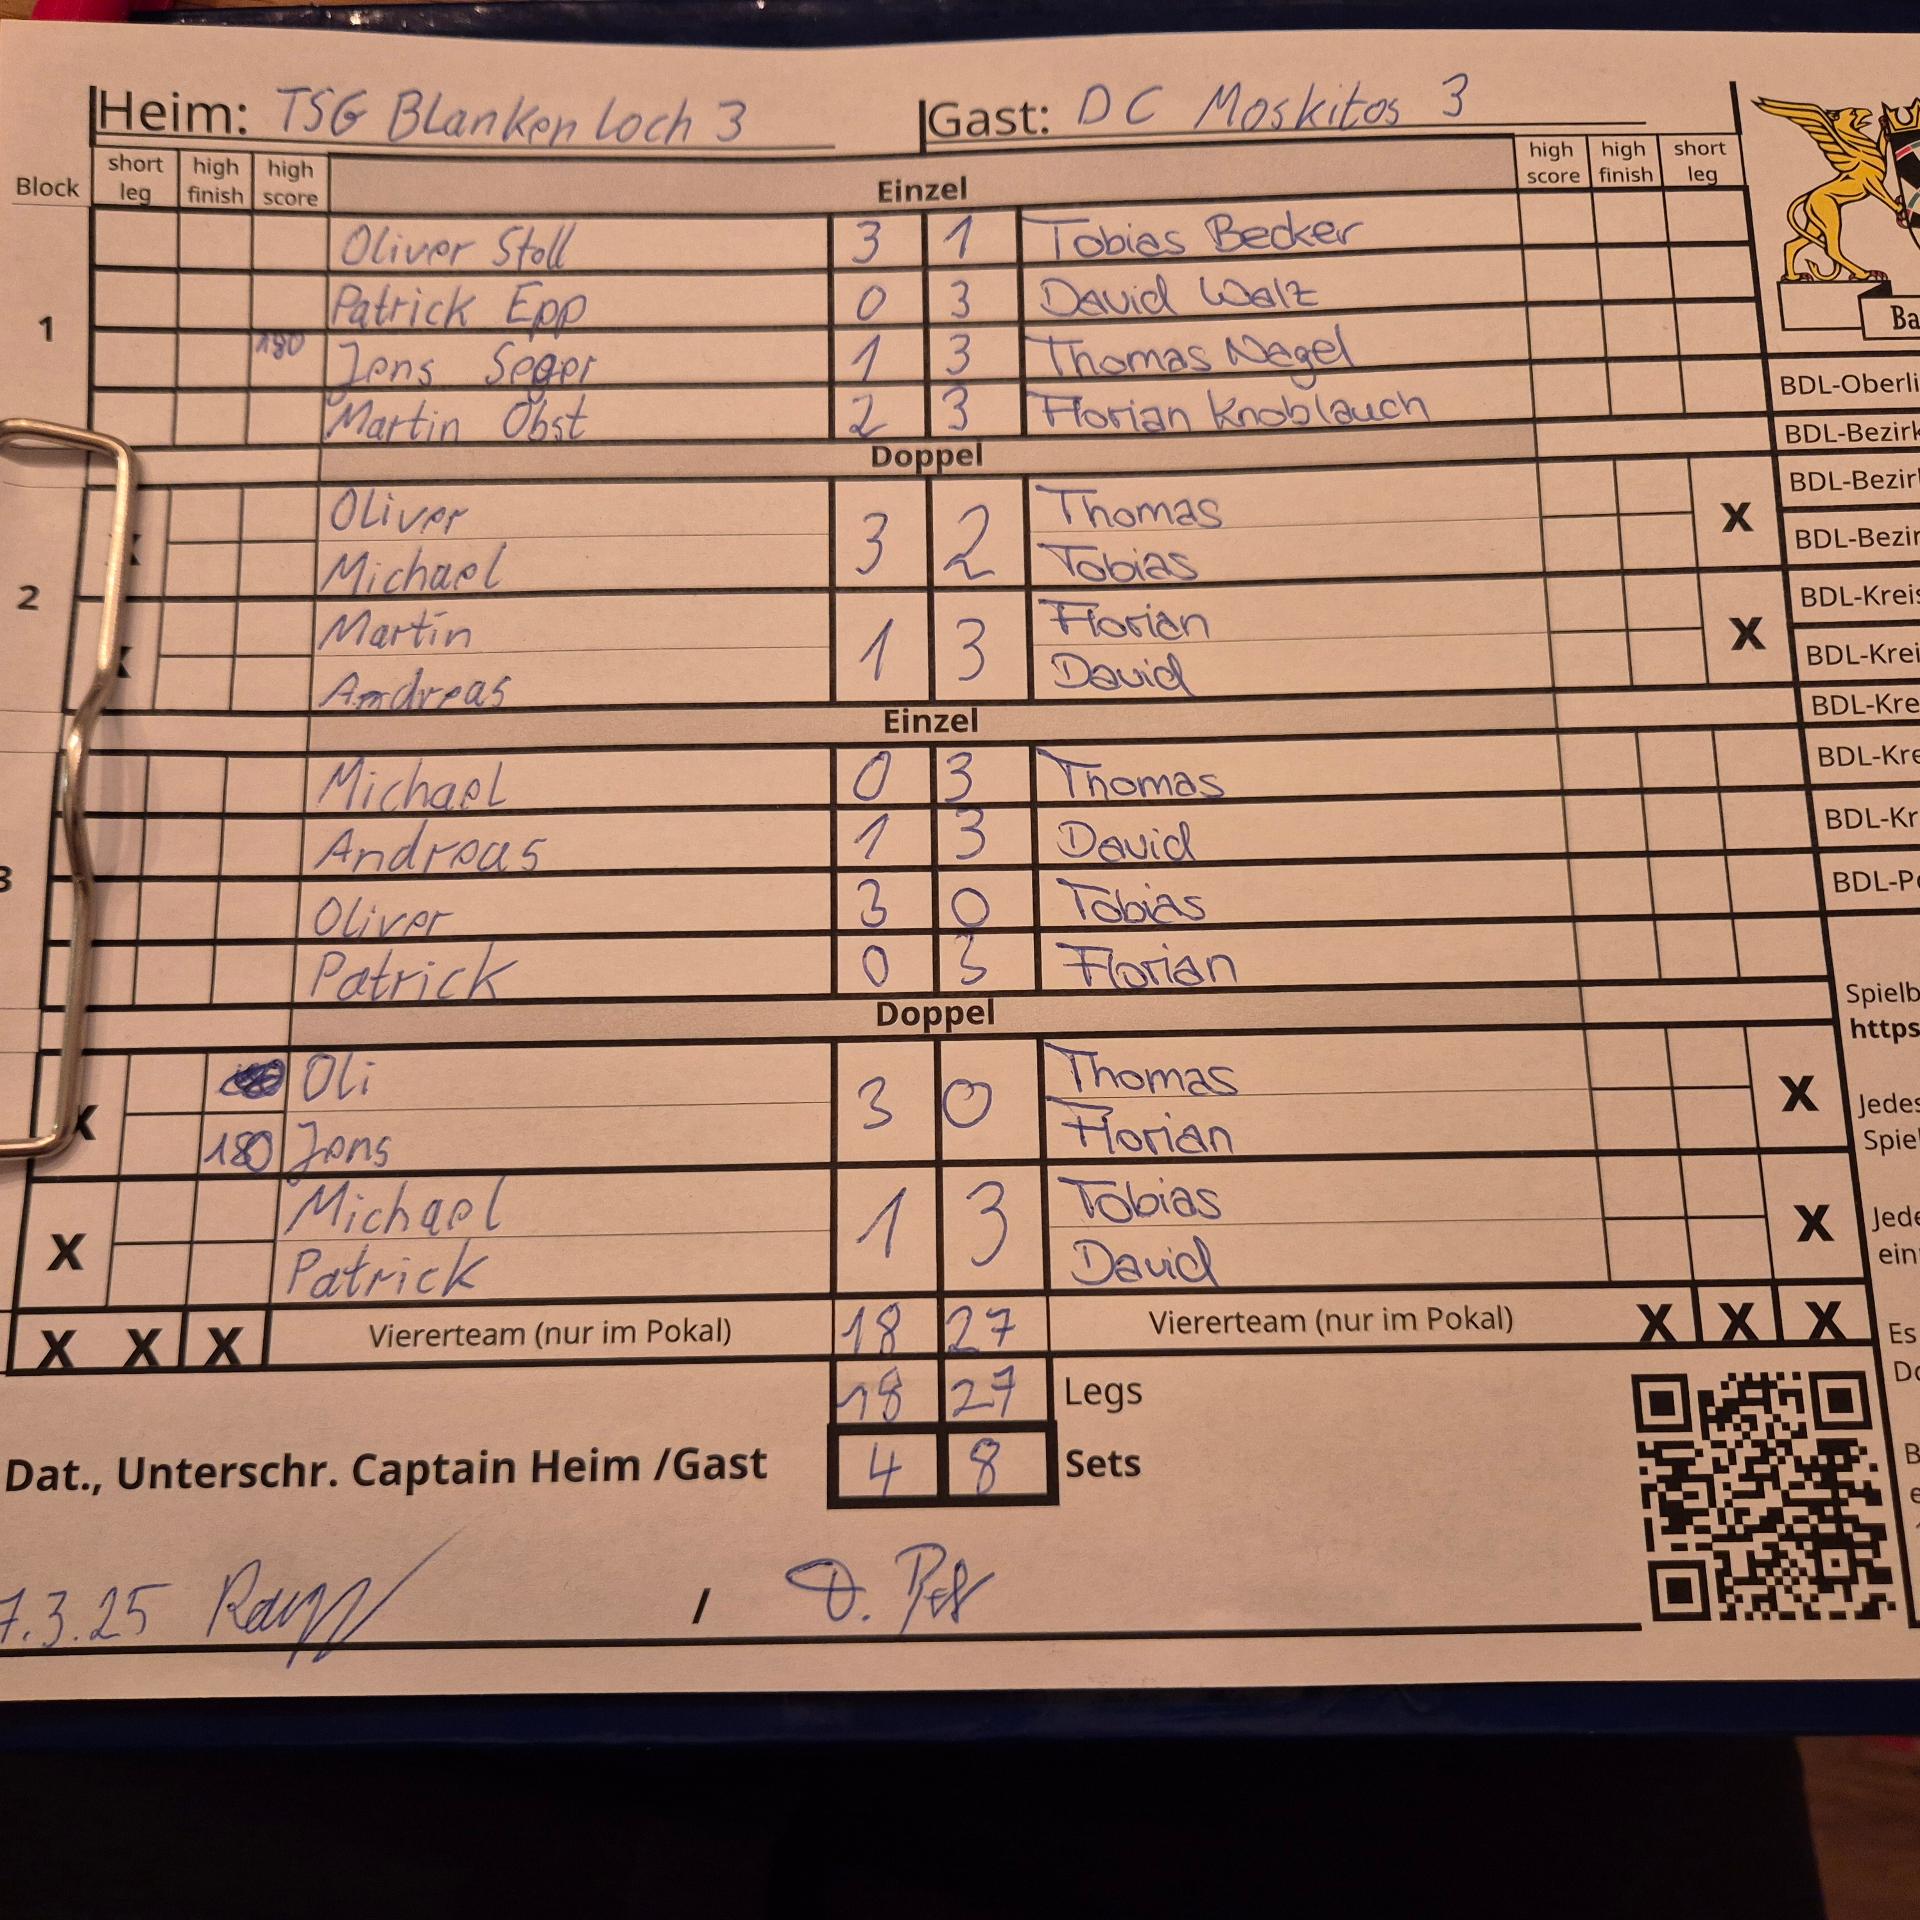 Heim: TSG Blankenloch 3 Gast: DC Moskitos 3
Block short leg high finish high score Einzel high score high finish short leg
1
Oliver Stoll 3 1 Tobias Becker
Patrick Epp 0 3 David Walz
180 Jens Seger 1 3 Thomas Nagel
Martin Obst 2 3 Florian Knoblauch
Doppel
2
Oliver 3 2 Thomas
Michael Tobias X
Martin 1 3 Florian
Andreas David X
Einzel
3
Michael 0 3 Thomas
Andreas 1 3 David
Oliver 3 0 Tobias
Patrick 0 3 Florian
Doppel
X Oli 3 0 Thomas X
180 Jens Florian
X Michael 1 3 Tobias X
Patrick David
X X X Viererteam (nur im Pokal) 18 27 Viererteam (nur im Pokal) X X X
18 27 Legs
Dat., Unterschr. Captain Heim /Gast 4 8 Sets
7.3.25 /
Ba
BDL-Oberli
BDL-Bezirk
BDL-Bezir
BDL-Bezir
BDL-Kreis
BDL-Krei
BDL-Kre
BDL-Kre
BDL-Kr
BDL-Po
Spielb
https
Jedes
Spiel
Jede
ein
Es
Do